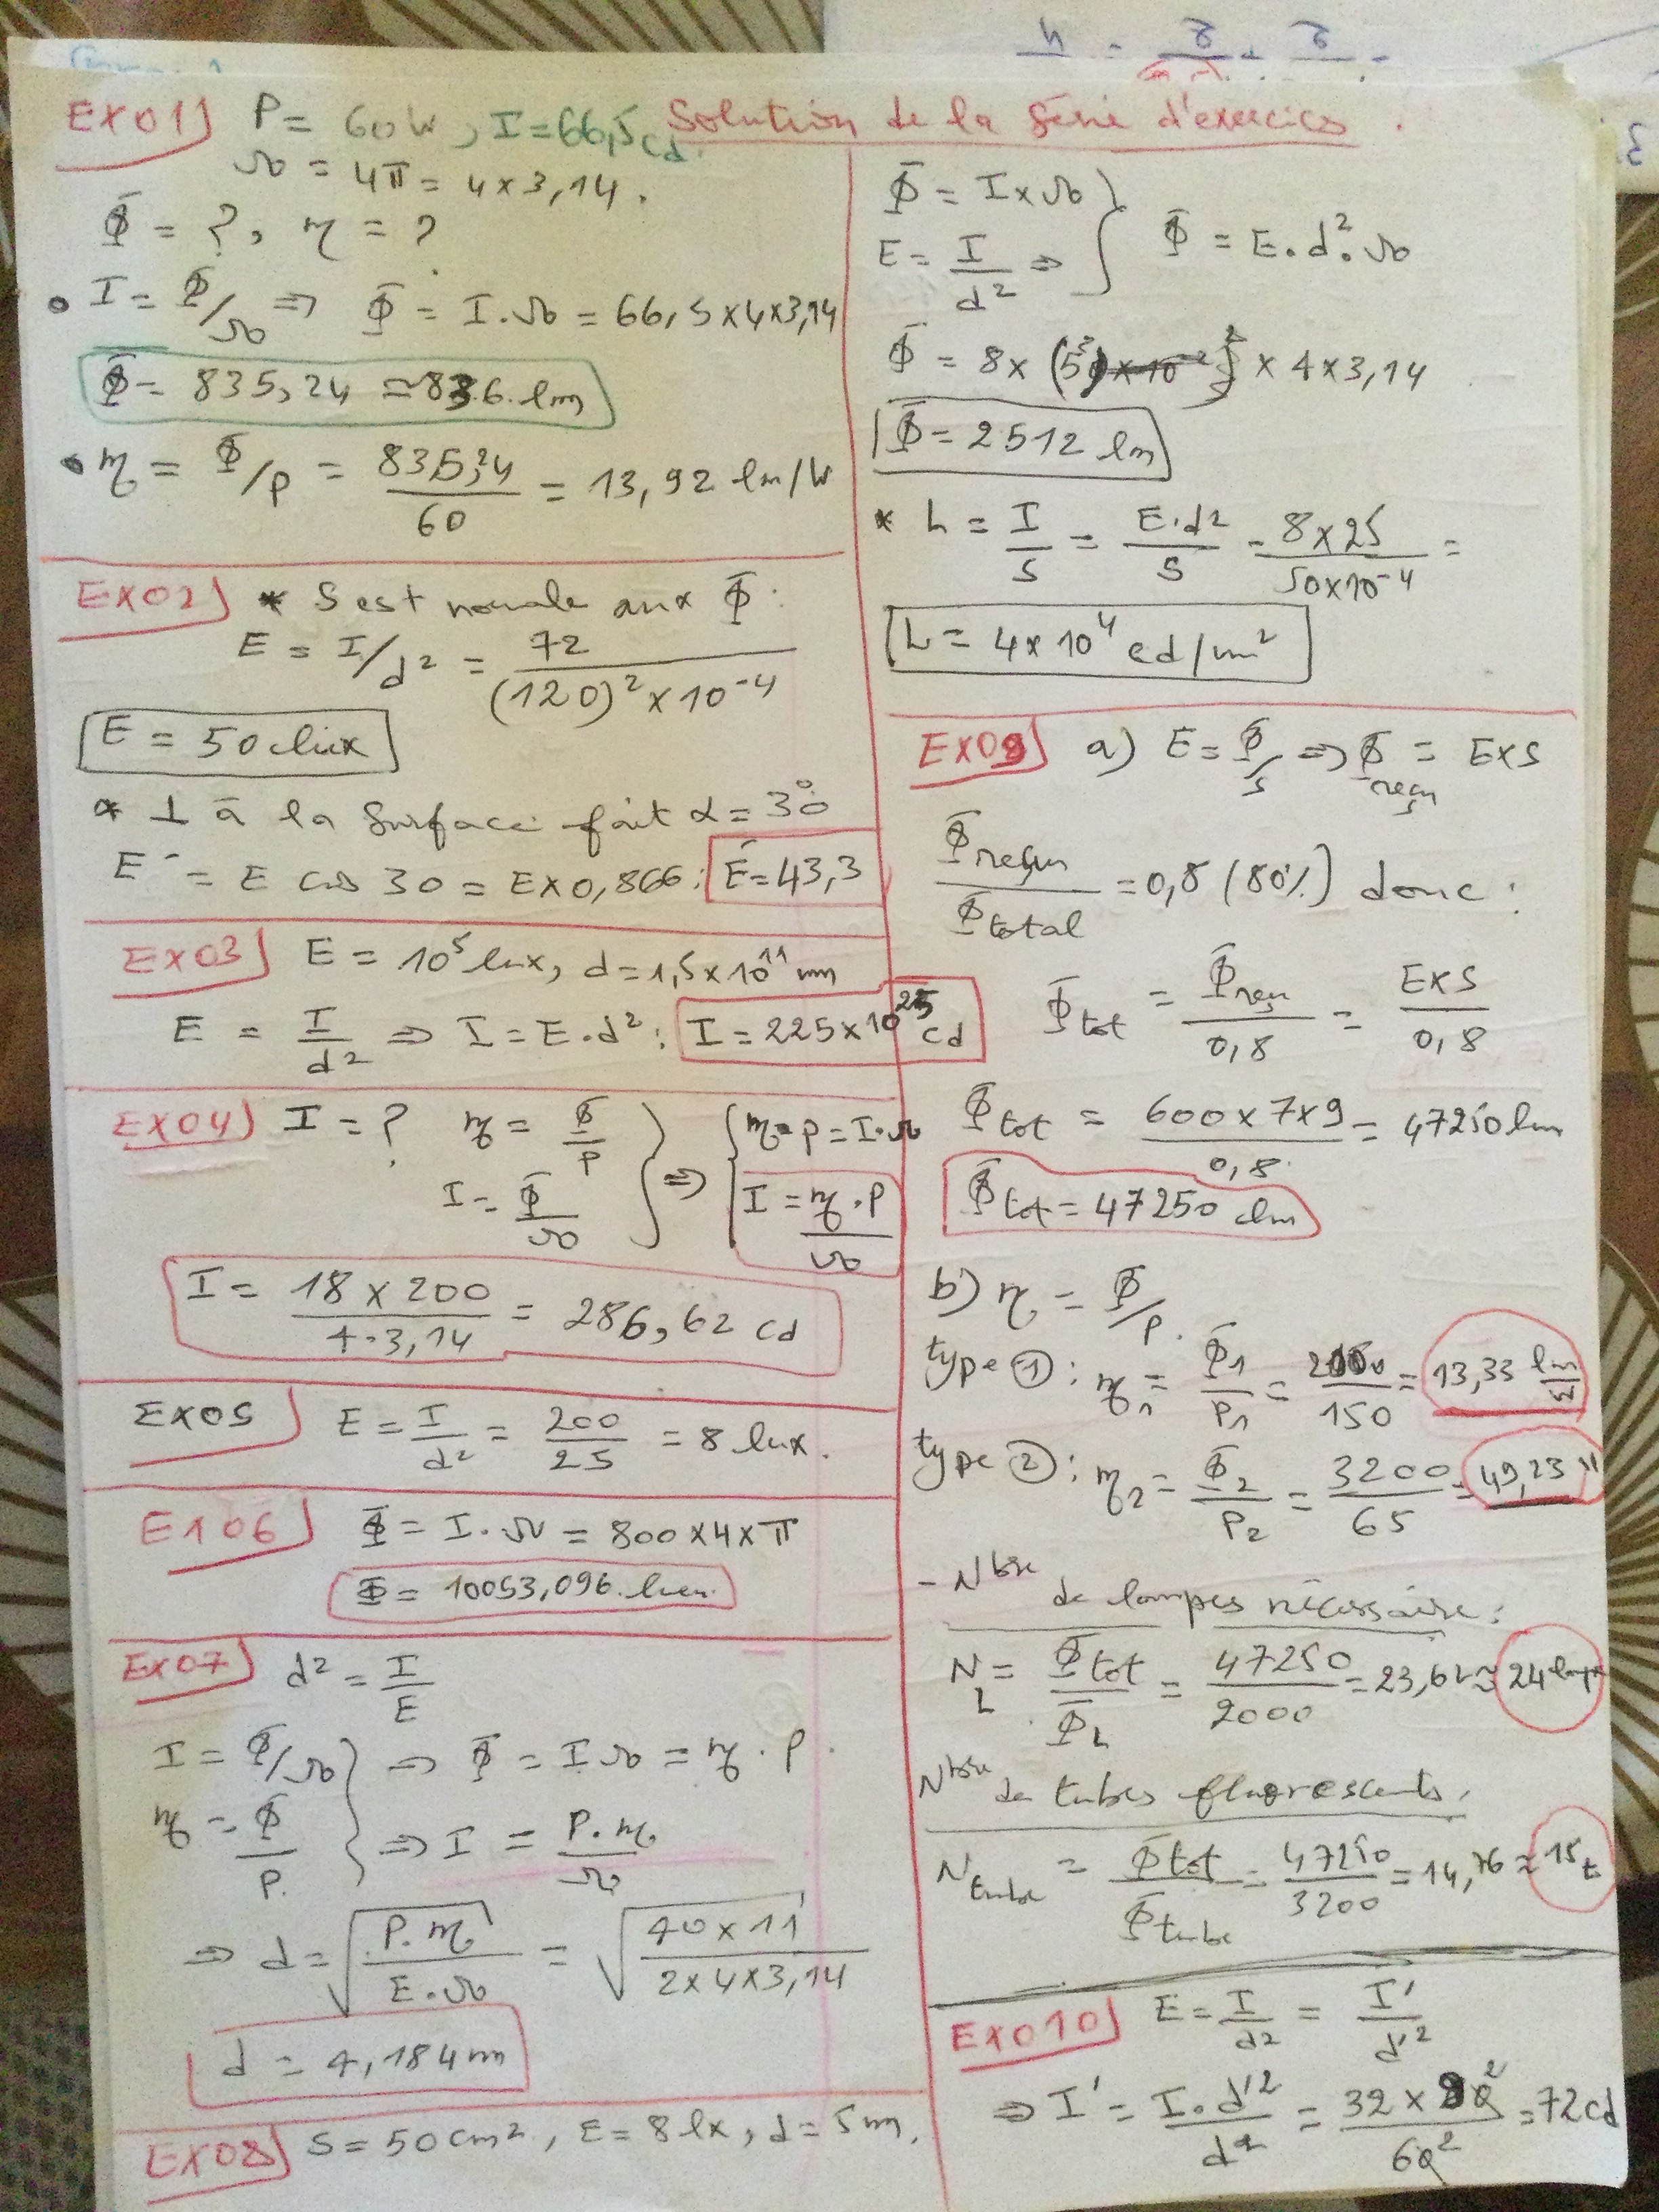 Solution de la Série d'exercices.
EX01) P = 60W, I = 66,5 cd
Ω = 4π = 4 x 3,14.
Φ = ?, η = ?
• I = Φ/Ω ⇒ Φ = I.Ω = 66,5 x 4 x 3,14
Φ = 835,24 ≈ 836. lm
• η = Φ/P = 835,24 / 60 = 13,92 lm/W
EX02) * S est normale aux Φ:
E = I/d² = 72 / (120)² x 10⁻⁴
E = 50 lux
* ⊥ à la Surface fait α = 30°
E' = E cos 30 = E x 0,866: E' = 43,3
EX03) E = 10⁵ lux, d = 1,5 x 10¹¹ m
E = I / d² ⇒ I = E.d²: I = 225 x 10²⁵ cd
EX04) I = ? η = Φ / P } ⇒ { η . P = I.Ω
I = Φ / Ω I = η . P / Ω
I = 18 x 200 / 4.3,14 = 286,62 cd
EX05) E = I / d² = 200 / 25 = 8 lux.
E106) Φ = I.Ω = 800 x 4 x π
Φ = 10053,096. lum.
EX07) d² = I / E
I = Φ/Ω } ⇒ Φ = I Ω = η . P.
η = Φ / P. } ⇒ I = P.η / Ω
⇒ d = √(P.η / E.Ω) = √(40 x 11 / 2 x 4 x 3,14)
d = 4,184 m
EX08) S = 50 cm², E = 8 lx, d = 5 m.
Φ = I x Ω }
E = I / d² ⇒ } Φ = E.d².Ω
Φ = 8 x (5)² x 4 x 3,14
Φ = 2512 lm
* L = I / S = E.d² / S = 8 x 25 / 50 x 10⁻⁴ =
L = 4 x 10⁴ cd/m²
EX09) a) E = Φ/S ⇒ Φ reçu = E x S
Φ reçu / Φ total = 0,8 (80%) donc:
Φ tot = Φ reçu / 0,8 = E x S / 0,8
Φ tot = 600 x 7 x 9 / 0,8 = 47250 lm
Φ tot = 47250 lm
b) η = Φ/P.
type ①: η₁ = Φ₁ / P₁ = 2000 / 150 = 13,33 lm/W
type ②: η₂ = Φ₂ / P₂ = 3200 / 65 = 49,23 "
- Nbre de lampes nécessaire:
N L = Φ tot / Φ L = 47250 / 2000 = 23,62 ≈ 24 lampe
Nbre de tubes fluorescents.
N tube = Φ tot / Φ tube = 47250 / 3200 = 14,76 ≈ 15 t
EX010) E = I / d² = I' / d'²
⇒ I' = I . d'² / d² = 32 x 9² / 6² = 72 cd